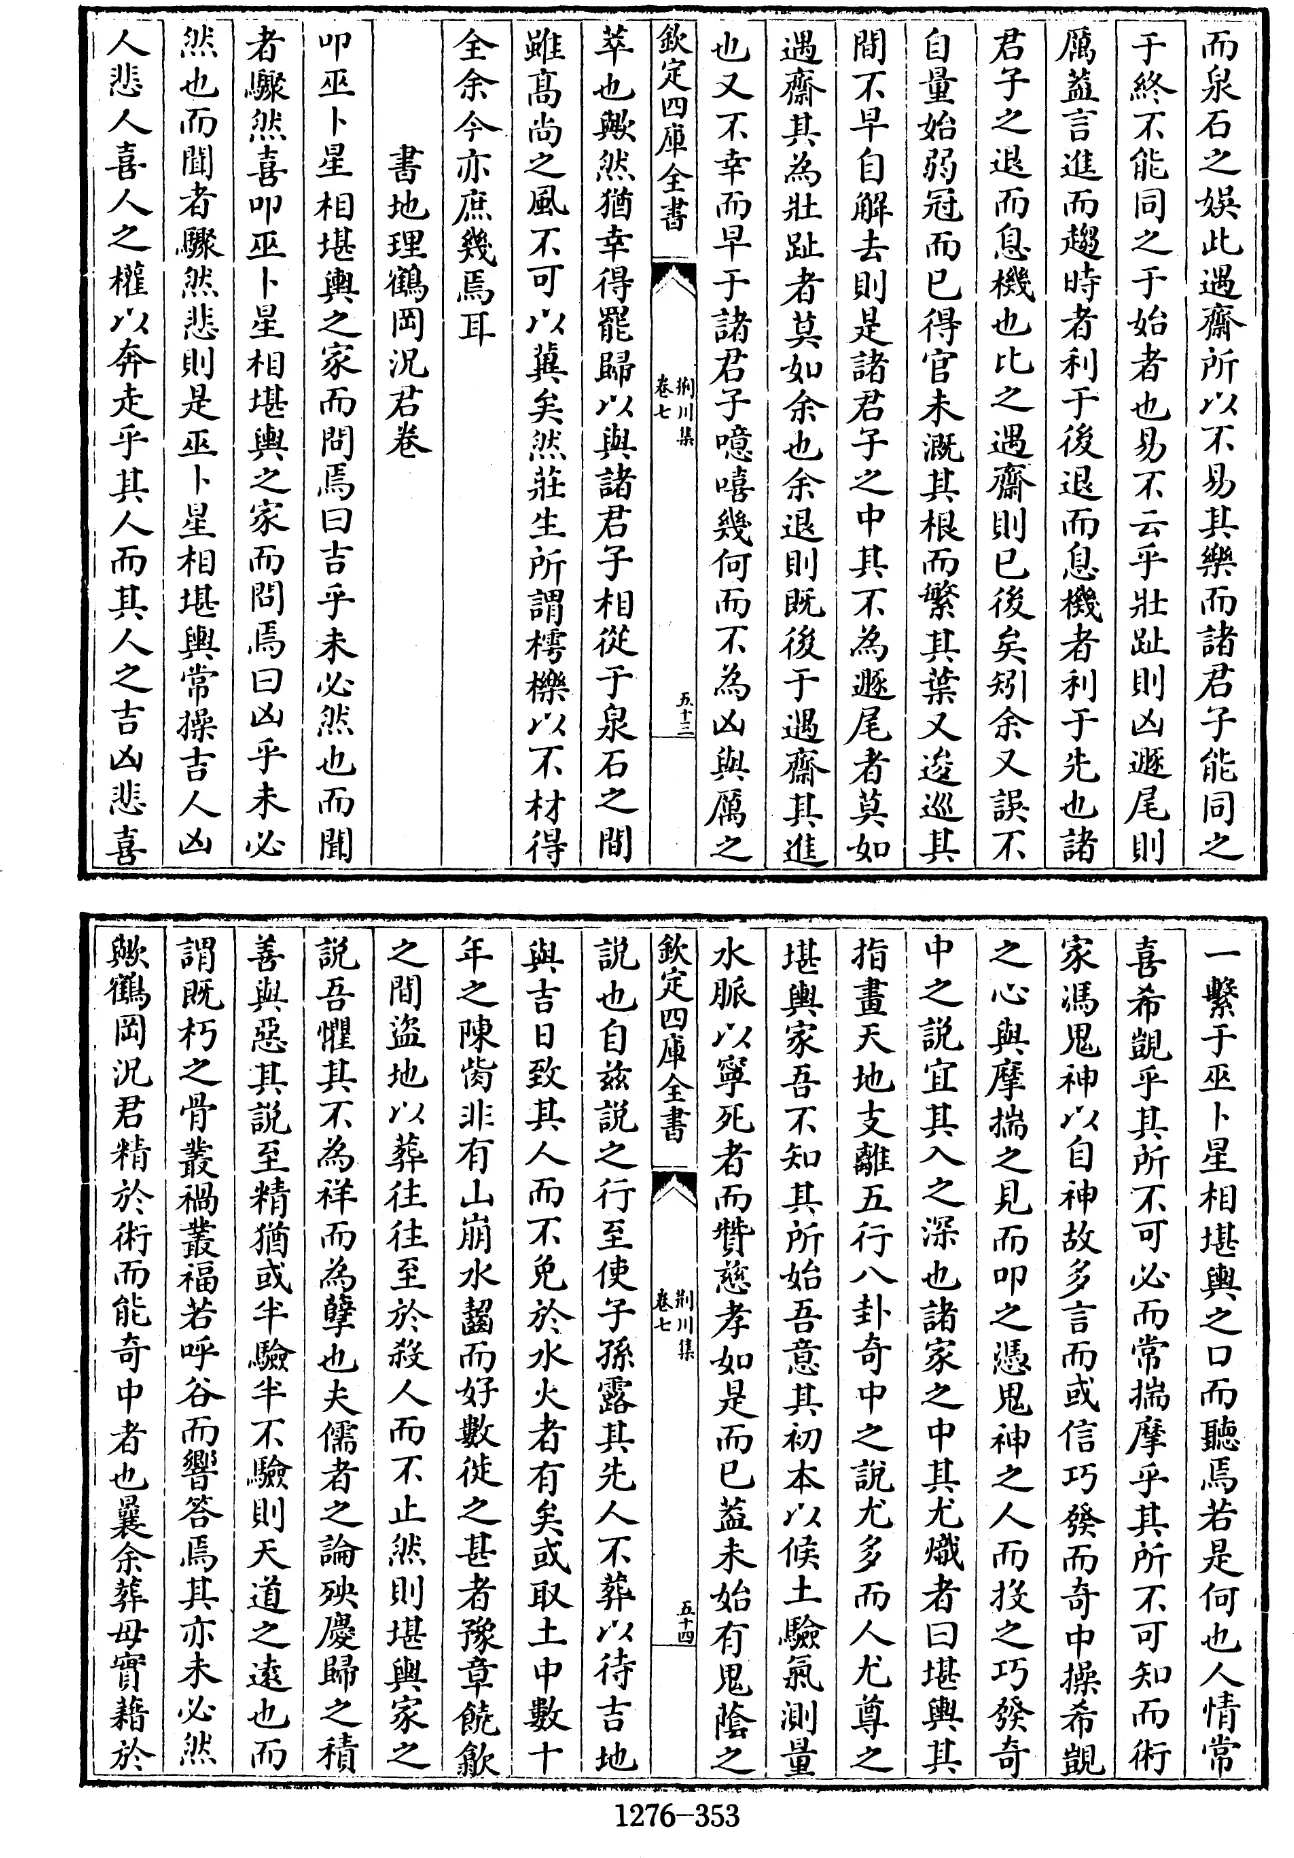 而泉石之娯此遇齋所以不易其樂而諸君子能同之
于終不能同之于始者也易不云乎壯趾則凶遯尾則
厲葢言進而趨時者利于後退而息機者利于先也諸
君子之退而息機也比之遇齋則已後矣矧余又誤不
自量始弱冠而已得官未溉其根而繁其葉又逡巡其
間不早自解去則是諸君子之中其不為遯尾者莫如
遇齋其為壯趾者莫如余也余退則既後于遇齋其進
也又不幸而早于諸君子噫嘻幾何而不為凶與厲之
欽定四庫全書
荆川集
卷七
五十三
萃也歟然猶幸得罷歸以與諸君子相從于泉石之間
雖高尚之風不可以冀矣然莊生所謂樗櫟以不材得
全余今亦庶幾焉耳
書地理鶴岡況君卷
叩巫卜星相堪輿之家而問焉曰吉乎未必然也而聞
者驟然喜叩巫卜星相堪輿之家而問焉曰凶乎未必
然也而聞者驟然悲則是巫卜星相堪輿常操吉人凶
人悲人喜人之權以奔走乎其人而其人之吉凶悲喜
一繫于巫卜星相堪輿之口而聽焉若是何也人情常
喜希覬乎其所不可必而常揣摩乎其所不可知而術
家馮鬼神以自神故多言而或信巧發而奇中操希覬
之心與摩揣之見而叩之憑鬼神之人而投之巧發奇
中之説宜其入之深也諸家之中其尤熾者曰堪輿其
指畫天地支離五行八卦奇中之説尤多而人尤尊之
堪輿家吾不知其所始吾意其初本以候土驗氣測量
水脈以寧死者而贊慈孝如是而已葢未始有鬼蔭之
欽定四庫全書
荆川集
卷七
五十四
説也自兹説之行至使子孫露其先人不葬以待吉地
與吉日致其人而不免於水火者有矣或取土中數十
年之陳胔非有山崩水齧而好數徙之甚者豫章饒歙
之間盜地以葬往往至於殺人而不止然則堪輿家之
説吾懼其不為祥而為孽也夫儒者之論殃慶歸之積
善與惡其説至精猶或半驗半不驗則天道之遠也而
謂既朽之骨叢禍叢福若呼谷而響答焉其亦未必然
歟鶴岡況君精於術而能奇中者也曩余葬母實藉於
1276-353